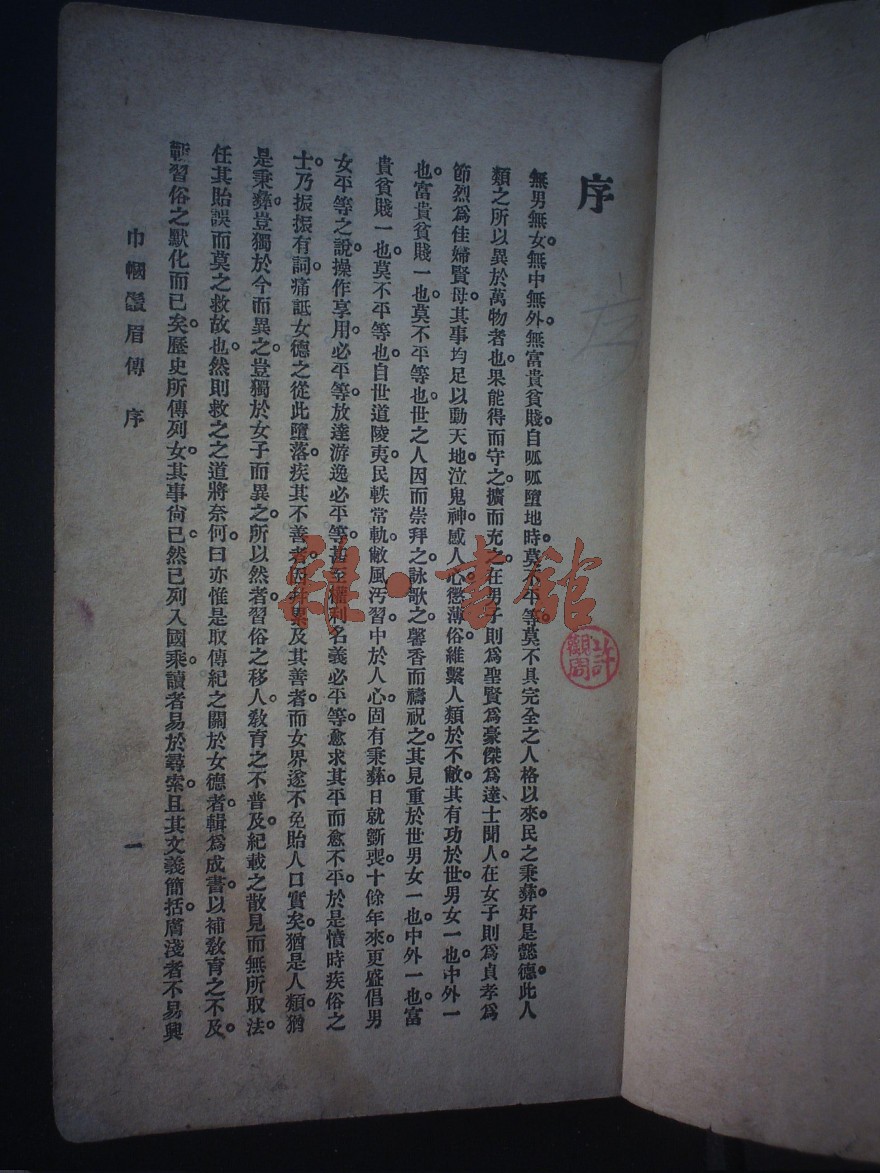 序
無男無女。無中無外。無富貴貧賤。自呱呱墮地時。莫不平等。莫不具完全之人格以來。民之秉彝。好是懿德。此人
類之所以異於萬物者也。果能得而守之。擴而充之。在男子則爲聖賢爲豪傑爲達士聞人。在女子則爲貞孝爲
節烈爲佳婦賢母。其事均足以動天地。泣鬼神。感人心。懲薄俗。維繫人類於不敝。其有功於世。男女一也。中外一
也。富貴貧賤一也。莫不平等也。世之人因而崇拜之。詠歌之。馨香而禱祝之。其見重於世。男女一也。中外一也。富
貴貧賤一也。莫不平等也。自世道陵夷。民軼常軌。敝風汚習。中於人心。固有秉彝。日就斵喪。十餘年來。更盛倡男
女平等之說。操作享用。必平等。放達游逸必平等。甚至權利名義必平等。愈求其平而愈不平。於是憤時疾俗之
士。乃振振有詞。痛詆女德之從此墮落。疾其不善者。因并累及其善者。而女界遂不免貽人口實矣。猶是人類。猶
是秉彝。豈獨於今而異之。豈獨於女子而異之。所以然者。習俗之移人。敎育之不普及。紀載之散見而無所取法。
任其貽誤而莫之救故也。然則救之之道將奈何。曰亦惟是取傳紀之關於女德者。輯爲成書。以補敎育之不及。
習俗之默化而已矣。歷史所傳列女。其事尙已。然已列入國乘。讀者易於尋索。且其文義簡括。膚淺者不易興
巾幗鬚眉傳 序
一
許觀周
雜·書館